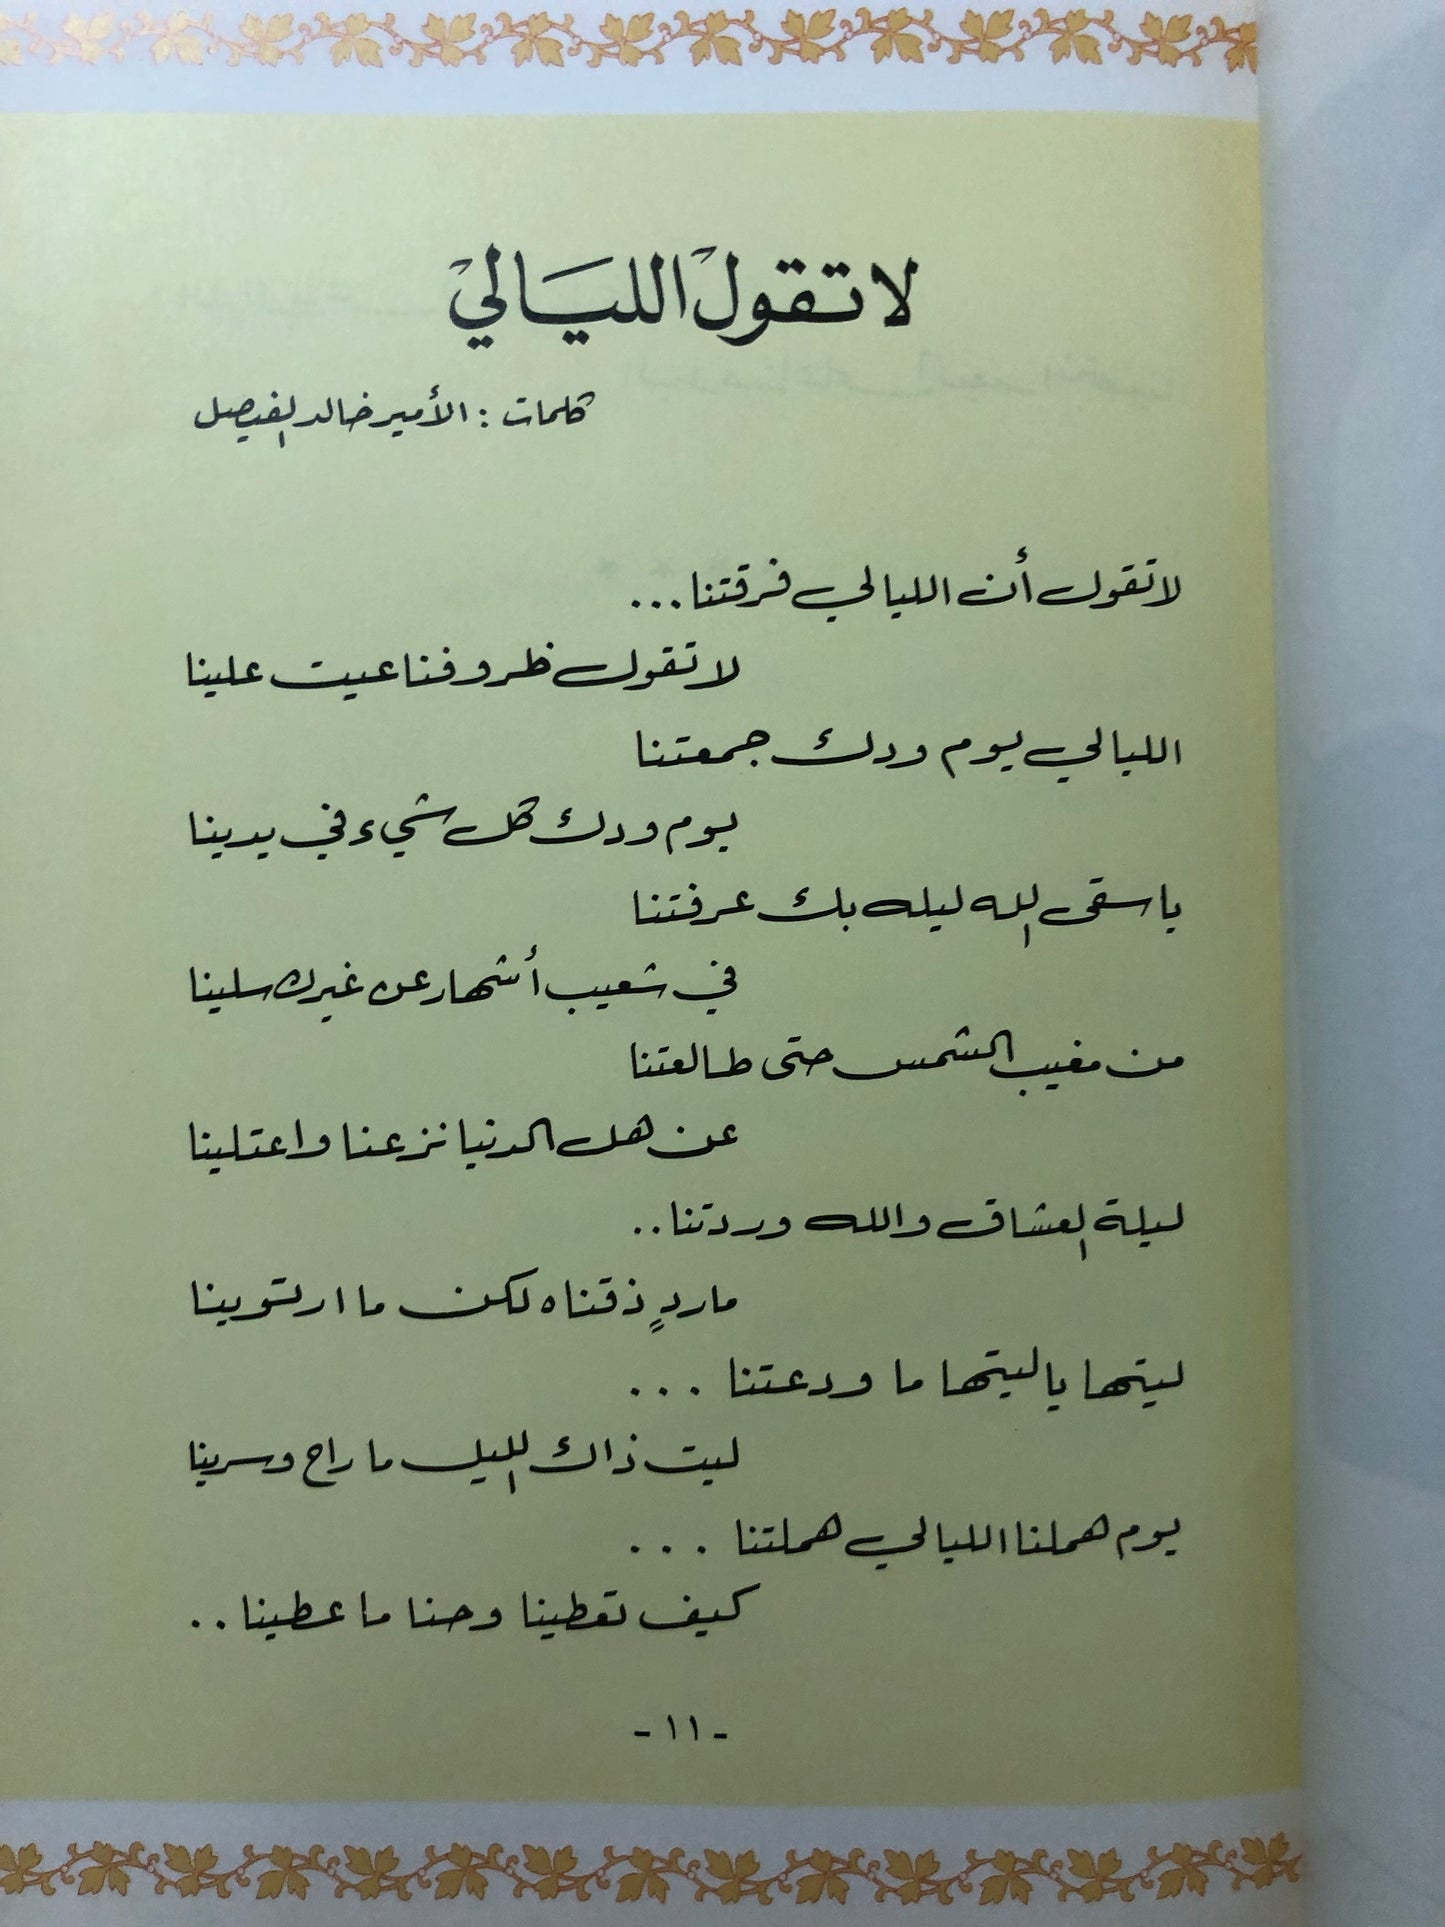 لا تقول الليالي
كلمات : الأمير خالد الفيصل
لا تقول أن الليالي فرقتنا ...
لا تقول ظروفنا عيت علينا
الليالي يوم ودك جمعتنا
يوم ودك كل شيء في يدينا
يا سقى الله ليله بك عرفتنا
في شعيب أشهار عن غيرك سلينا
من مغيب الشمس حتى طالعتنا
عن هل الدنيا نزعنا واعتلينا
ليلة العشاق والله وردتنا ..
ماردٍ ذقناه لكن ما ارتوينا
ليتها يا ليتها ما ودعتنا ...
ليت ذاك الليل ما راح وسرينا
يوم هملنا الليالي هملتنا ...
كيف تعطينا وحنا ما عطينا ..
- ١١ -